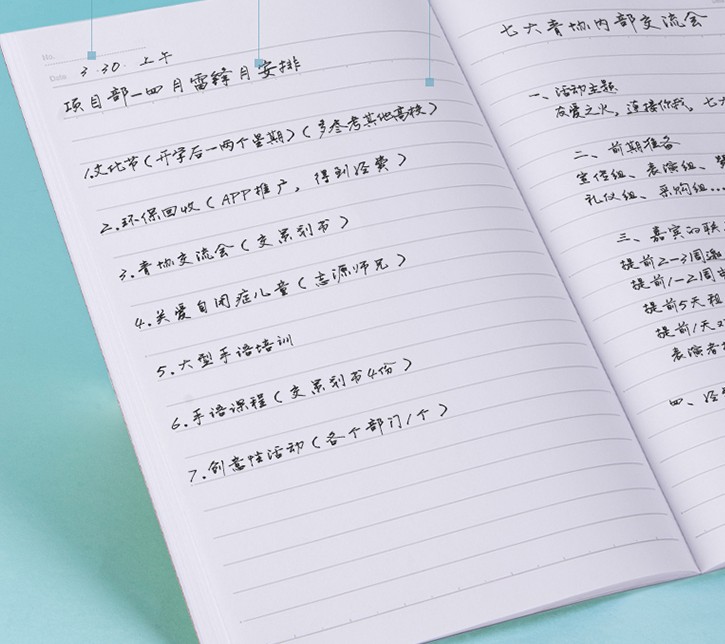 No.
Date 3.30 上午
项目部—四月雷锋月安排
1.文化节(开学后一两个星期)(多参考其他高校)
2.环保回收(APP推广,得到经费)
3.青协交流会(交策划书)
4.关爱自闭症儿童(志源师兄)
5.大型手语培训
6.手语课程(交策划书4份)
7.创意性活动(各个部门1个)
七大青协内部交流会
一、活动主题
友爱之火,连接你我,七大
二、前期准备
宣传组、表演组、
礼仪组、采购组...
三、嘉宾的联
提前2-3周邀
提前1-2周
提前5天租
提前1天
表演者
四、经